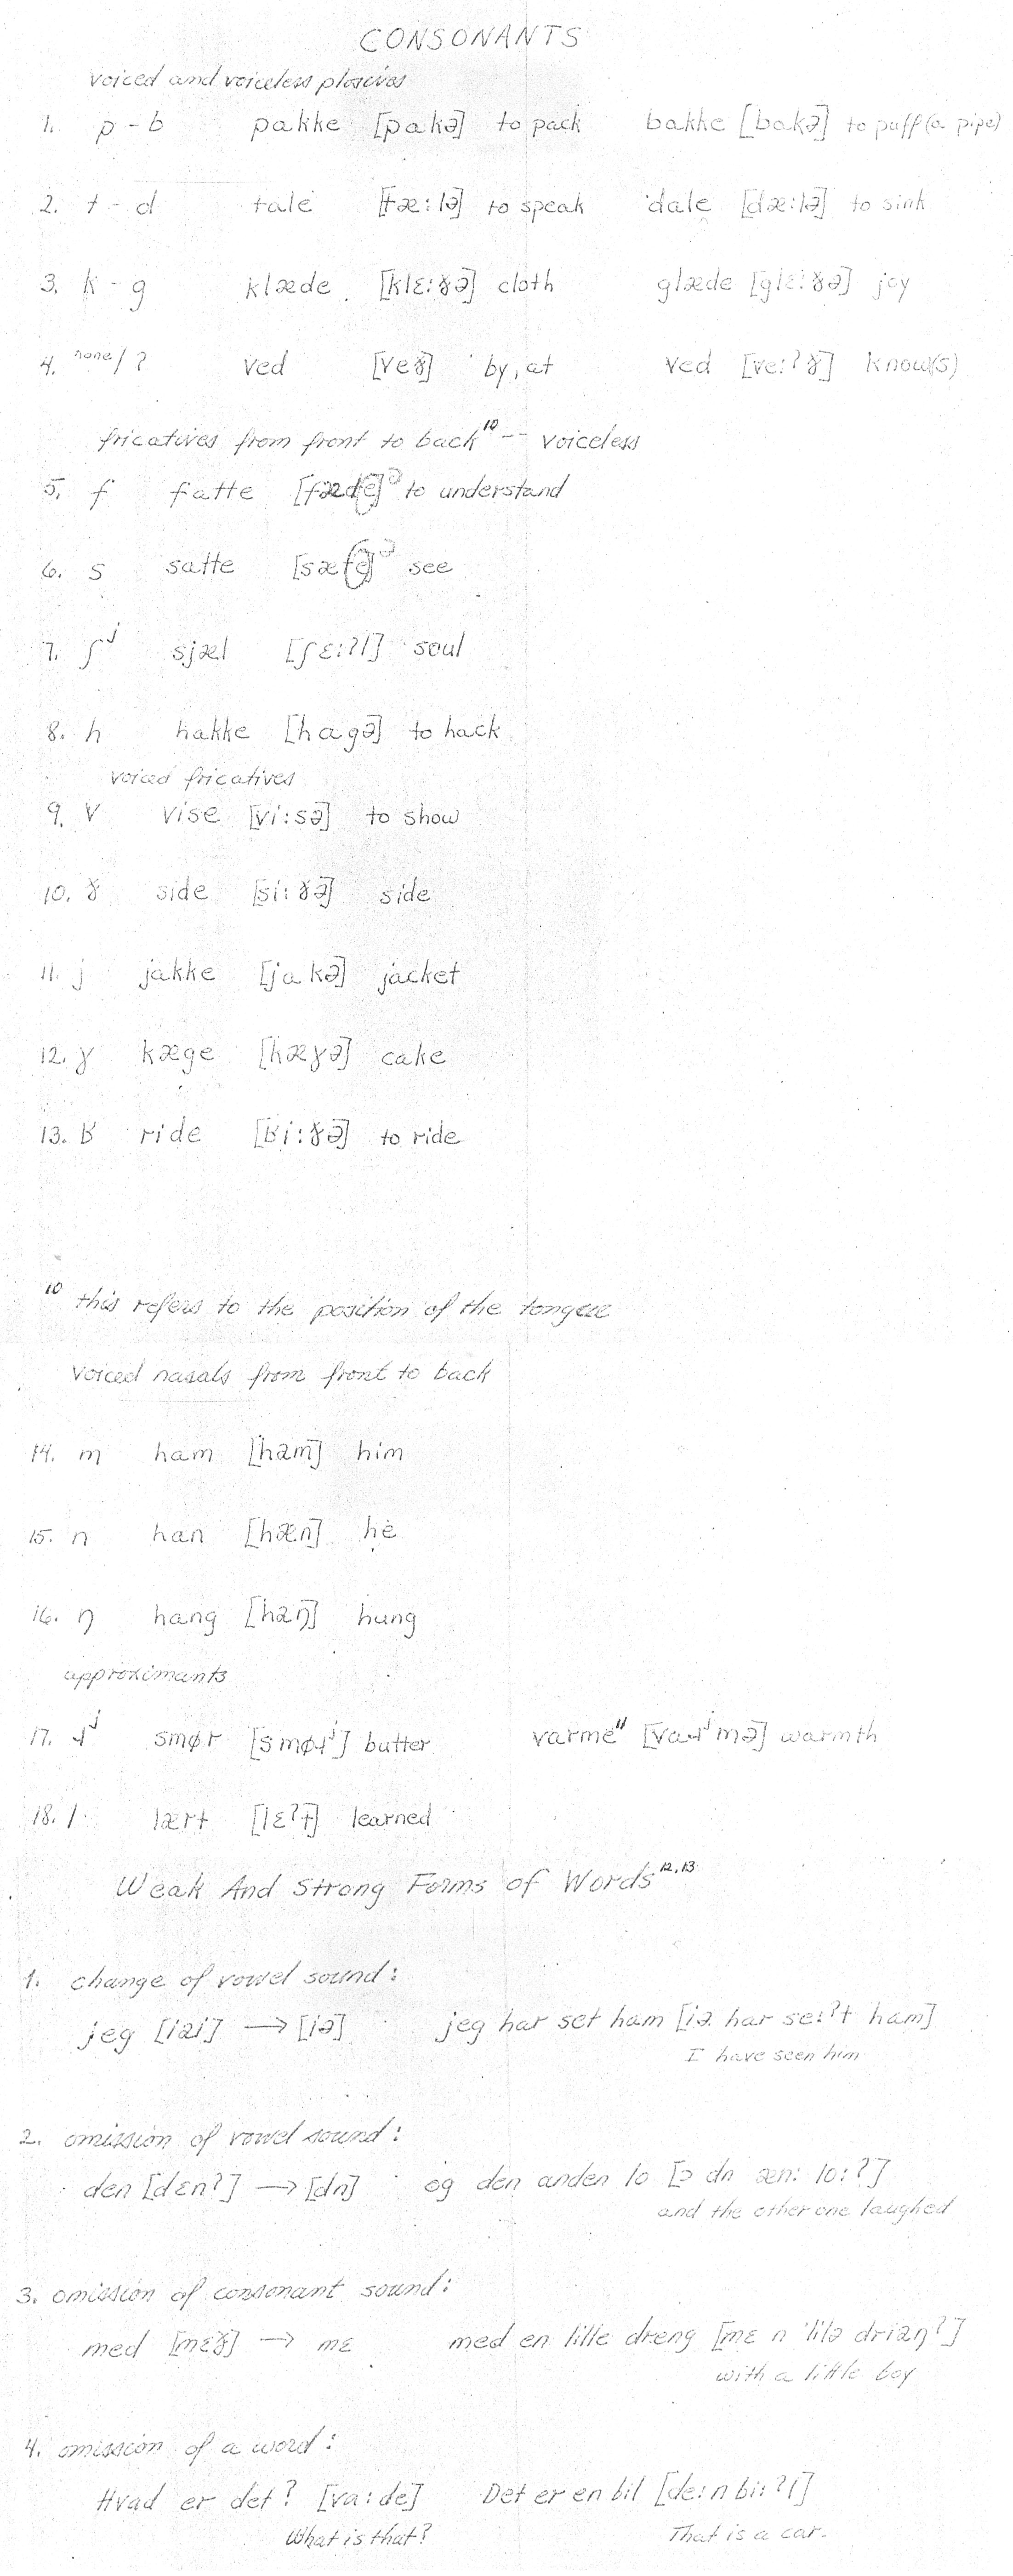 CONSONANTS
voiced and voiceless plosives
1. p - b pakke [pakə] to pack bakke [bakə] to puff (a pipe)
2. t - d tale [tæ:lə] to speak dale [dæ:lə] to sink
3. k - g klæde [klɛ:ɣə] cloth glæde [glɛ:ɣə] joy
4. none/ʔ ved [veɣ] by, at ved [ve:ʔɣ] know(s)
fricatives from front to back¹⁰ -- voiceless
5. f fatte to understand
6. s satte see
7. ʃʲ sjæl [ʃɛ:ʔl] soul
8. h hakke [hagə] to hack
voiced fricatives
9. v vise [vi:sə] to show
10. ɣ side [si:ɣə] side
11. j jakke [jakə] jacket
12. ɣ kæge [kæɣə] cake
13. ʁ ride [ʁi:ɣə] to ride
¹⁰ this refers to the position of the tongue
voiced nasals from front to back
14. m ham [ham] him
15. n han [hæn] he
16. ŋ hang [haŋ] hung
approximants
17. ɹʲ smør [smøɹʲ] butter varme¹¹ [vaɹʲmə] warmth
18. l lært [lɛʔt] learned
Weak And Strong Forms of Words¹²,¹³
1. change of vowel sound:
jeg [iai] → [iə] jeg har set ham [iə har se:ʔt ham]
I have seen him
2. omission of vowel sound:
den [dɛnʔ] → [dn] og den anden lo [ɔ dn æn: lo:ʔ]
and the other one laughed
3. omission of consonant sound:
med [mɛɣ] → mɛ med en lille dreng [mɛ n 'lilə driaŋʔ]
with a little boy
4. omission of a word:
Hvad er det? [va:de] Det er en bil [de:n bi:ʔl]
What is that? That is a car.